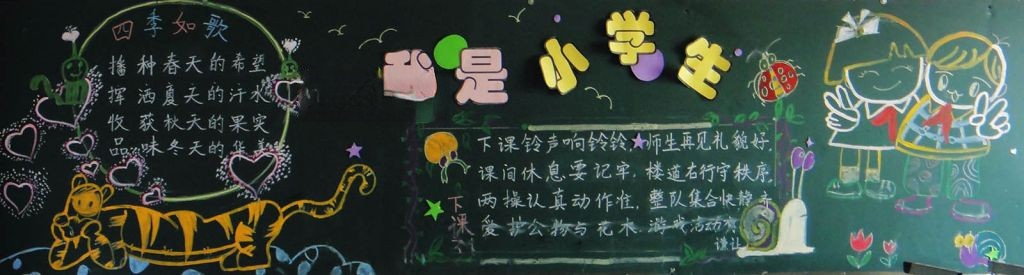 四季如歌
播种春天的希望
挥洒夏天的汗水
收获秋天的果实
品味冬天的华美
我是小学生
下课
下课铃声响铃铃,师生再见礼貌好.
课间休息要记牢,楼道右行守秩序,
两操认真动作佳,整队集合快静齐
爱护公物与花木,游戏活动
谦让